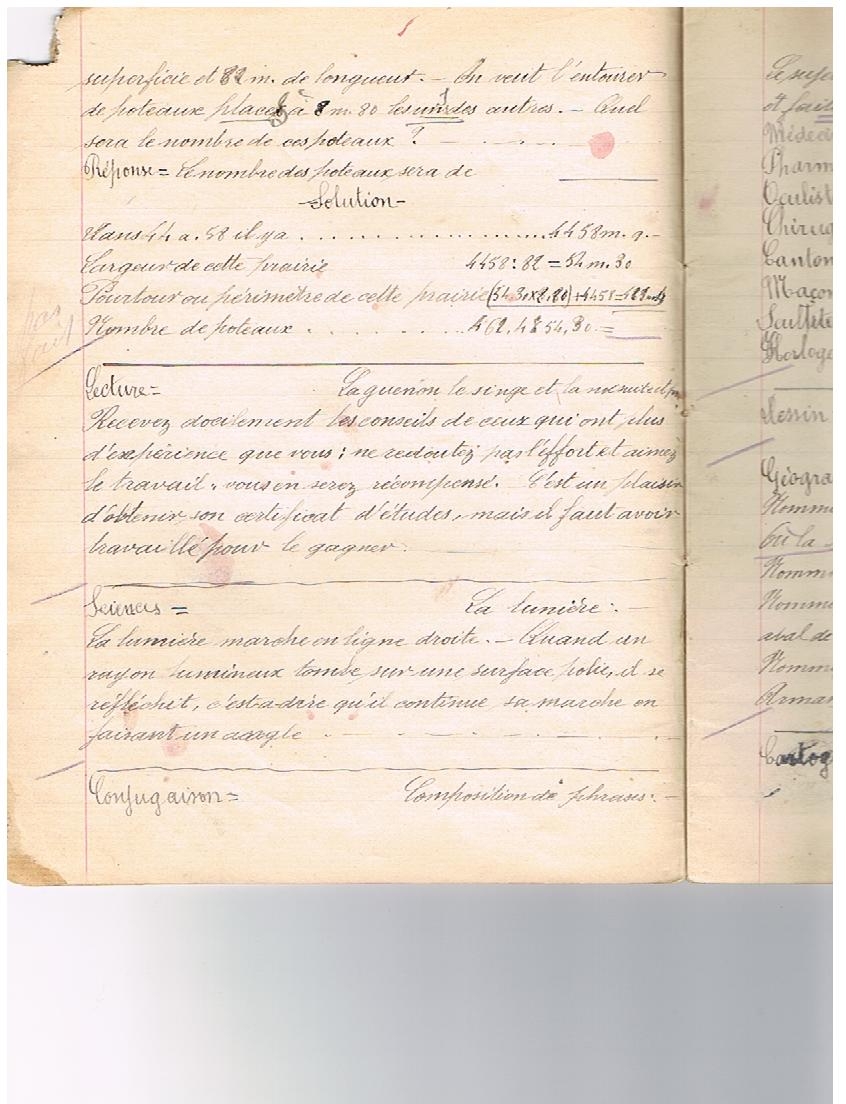 superficie et 82 m. de longueur. - On veut l'entourer
de poteaux placés à 8 m. 80 les uns des autres. - Quel
sera le nombre de ces poteaux ?
Réponse = Le nombre des poteaux sera de
- Solution -
Dans 44 a. 58 il y a 4458 m. q. -
Largeur de cette prairie 4458 : 82 = 54 m. 30
Pourtour ou périmètre de cette prairie
Nombre de poteaux
pas
fait
Lecture = La guenon le singe et la noix
Recevez docilement les conseils de ceux qui ont plus
d'expérience que vous ; ne redoutez pas l'effort et aimez
le travail : vous en serez récompensé. C'est un plaisir
d'obtenir son certificat d'études, mais il faut avoir
travaillé pour le gagner.
Sciences = La lumière : -
La lumière marche en ligne droite. - Quand un
rayon lumineux tombe sur une surface polie, il se
réfléchit, c'est-a-drie qu'il continue sa marche en
faisant un angle
Conjugaison = Composition de phrases : -
Le
et fai
Médeci
Pharm
Oculist
Chirug
Canton
Maçon
Horloge
Dessin
Géogra
Nomme
Où la
Nomm
Nomme
aval de
Nomm
Arman
Cartog